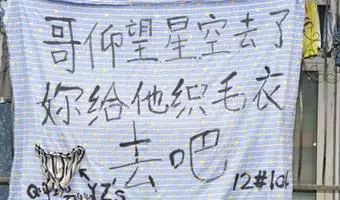 哥仰望星空去了
妳给他织毛衣
去吧
YZ's
12#101